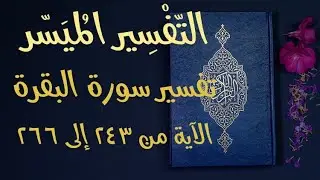 التَّفْسِير المُيَسَّر
تفسير سورة البقرة
الآية من ٢٤٣ إلى ٢٦٦